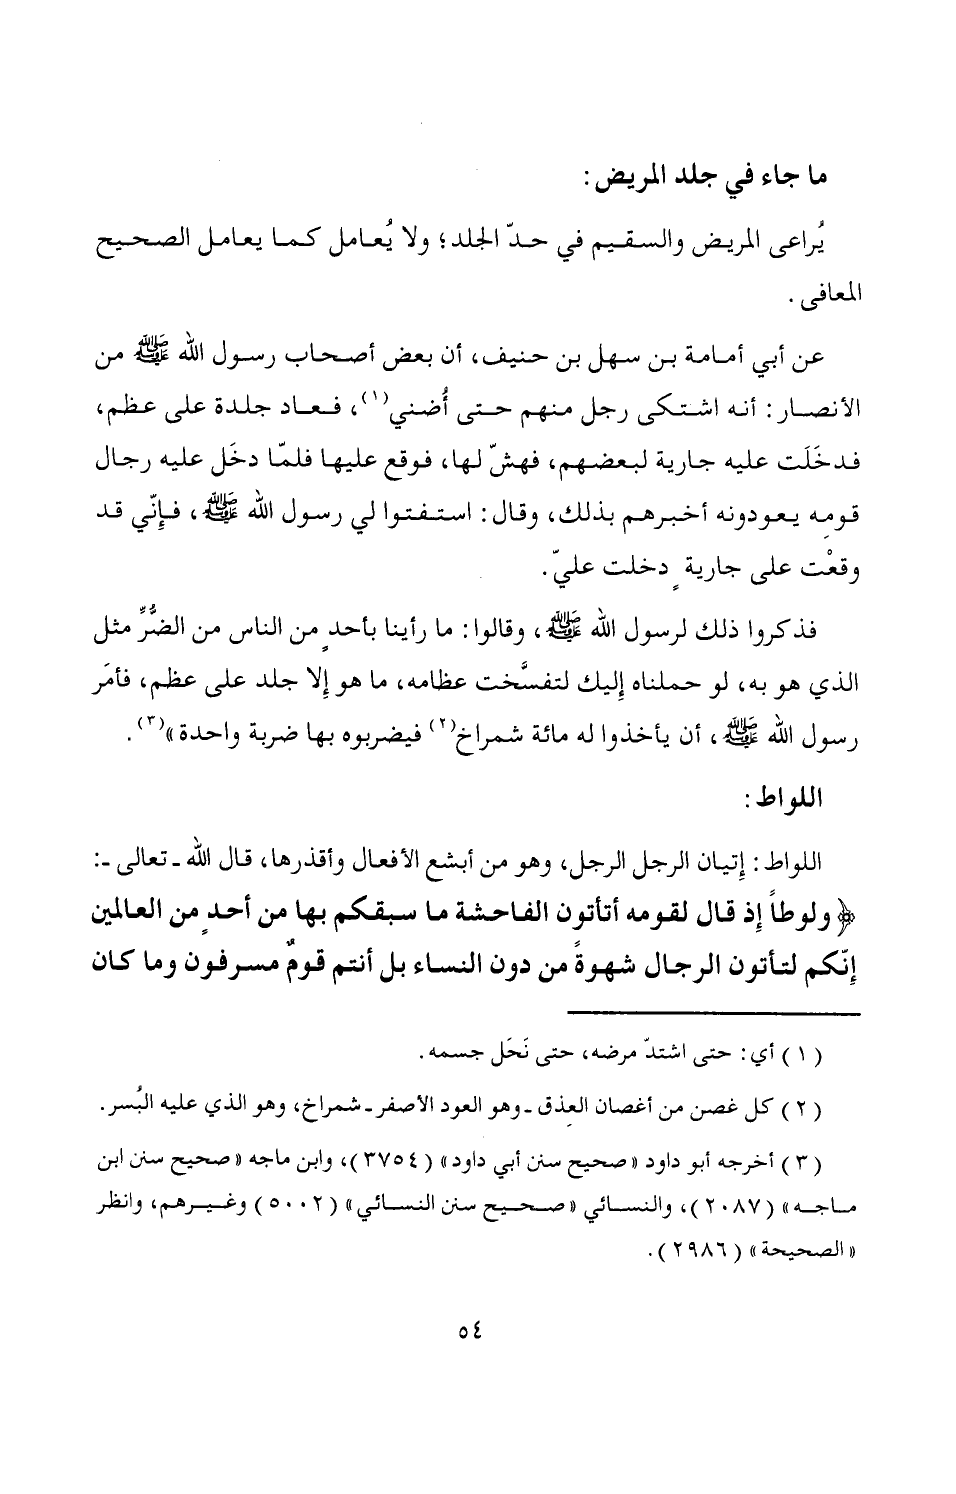 ما جاء في جلد المريض :
يُراعى المريض والسقيم في حدّ الجلد؛ ولا يُعامل كما يعامل الصحيح
المعافى .
عن أبي أمامة بن سهل بن حنيف، أن بعض أصحاب رسول الله ﷺ من
الأنصار : أنه اشتكى رجل منهم حتى أُضني(١)، فعاد جلدة على عظم،
فدخَلَت عليه جارية لبعضهم، فهشّ لها، فوقع عليها فلمّا دخَل عليه رجال
قومِه يعودونه أخبرهم بذلك، وقال : استفتوا لي رسول الله ﷺ، فإنّي قد
وقعْت على جاريةٍ دخلت عليّ.
فذكروا ذلك لرسول الله ﷺ، وقالوا : ما رأينا بأحدٍ من الناس من الضُّرِّ مثل
الذي هو به، لو حملناه إليك لتفسَّخت عظامه، ما هو إلا جلد على عظم، فأمَر
رسول الله ﷺ، أن يأخذوا له مائة شمراخ(٢) فيضربوه بها ضربة واحدة»(٣).
اللواط :
اللواط : إتيان الرجل الرجل، وهو من أبشع الأفعال وأقذرها، قال الله ـ تعالى ـ:
﴿ولوطاً إذ قال لقومه أتأتون الفاحشة ما سبقكم بها من أحدٍ من العالمين
إنّكم لتأتون الرجال شهوةً من دون النساء بل أنتم قومٌ مسرفون وما كان
(١) أي : حتى اشتدّ مرضه، حتى نَحَل جسمه .
(٢) كل غصن من أغصان العِذق ـ وهو العود الأصفر ـ شمراخ، وهو الذي عليه البُسر .
(٣) أخرجه أبو داود «صحيح سنن أبي داود» (٣٧٥٤)، وابن ماجه «صحيح سنن ابن
ماجه» (٢٠٨٧)، والنسائي «صحيح سنن النسائي» (٥٠٠٢) وغيرهم، وانظر
«الصحيحة» (٢٩٨٦).
٥٤